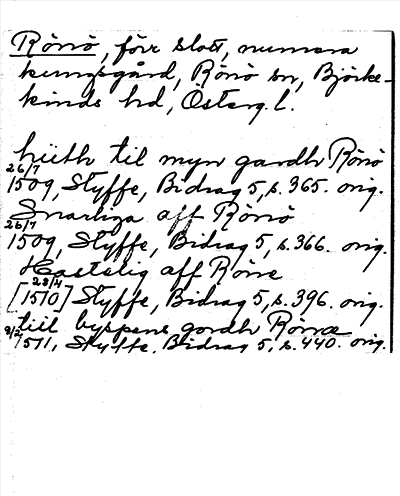 Rönö, förr slott, numera
kungsgård, Rönö sn, Björke-
kinds hd, Österg. l.
hiith til myn gardh Rönö
26/7 1509, Styffe, Bidrag 5, s. 365. orig.
Snarliga aff Rönö
26/7 1509, Styffe, Bidrag 5, s. 366. orig.
Hastelig aff Röne
[28/4 1510] Styffe, Bidrag 5, s. 396. orig.
til byspens gardh Rönæ
2/2 1511, Styffe, Bidrag 5, s. 440. orig.